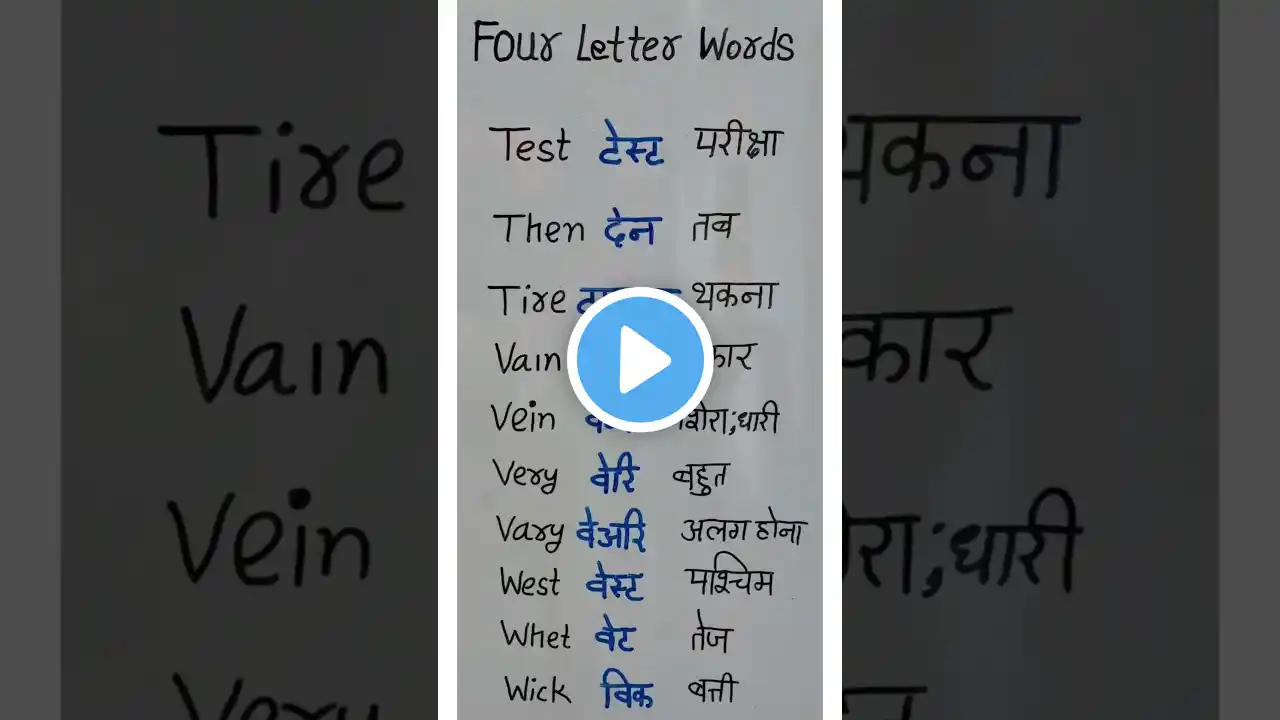 Four Letter Words
Test टेस्ट परीक्षा
Then देन तब
Tire थकना
Vain
Vein शिरा;धारी
Very वेरि बहुत
Vary वेअरि अलग होना
West वेस्ट पश्चिम
Whet वेट तेज
Wick विक बत्ती